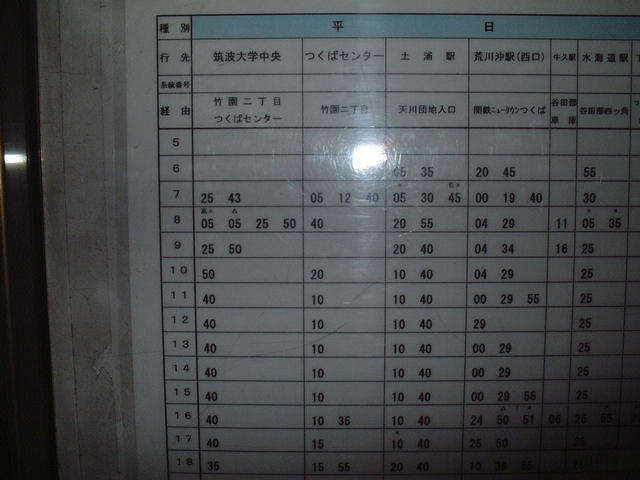 種別 平日
行先 筑波大学中央 つくばセンター 土浦駅 荒川沖駅(西口) 牛久駅 水海道駅
系統番号
経由 竹園二丁目 つくばセンター 竹園二丁目 天川団地入口 関鉄ニュータウンつくば 谷田部車庫 谷田部四ッ角
5
6 05 35 20 45 55
7 25 43 05 12 40 05 30 45 00 19 40 30
8 05 05 25 50 40 20 55 04 29 11 05 35
9 25 50 20 40 04 34 16 25
10 50 20 10 40 04 29 25
11 40 10 10 40 00 29 55 25
12 40 10 10 40 29 25
13 40 10 10 40 00 29 25
14 40 10 10 40 00 29 25
15 40 10 10 40 00 29 55 25
16 40 10 35 10 40 24 50 51 06 25
17 40 15 10 40 25 50 25
18 35 15 55 20 40 10 55 25